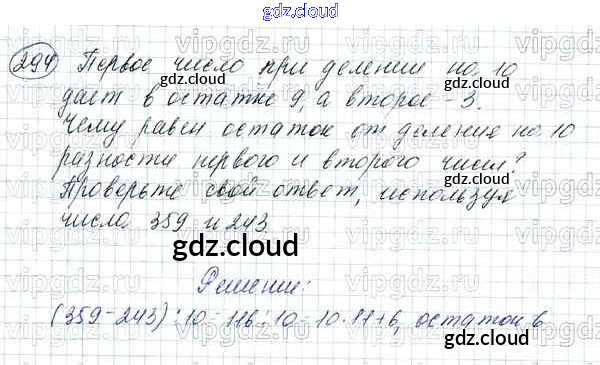 gdz.cloud
294 Первое число при делении на 10
gdz.cloud
даёт в остатке 9, а второе - 3.
gdz.cloud
Чему равен остаток от деления на 10
разности первого и второго чисел?
gdz.cloud
Проверьте свой ответ, используя
числа 359 и 243.
gdz.cloud
Решение:
(359-243):10=116:10=10·11+6, остаток 6
vipgdz.ru